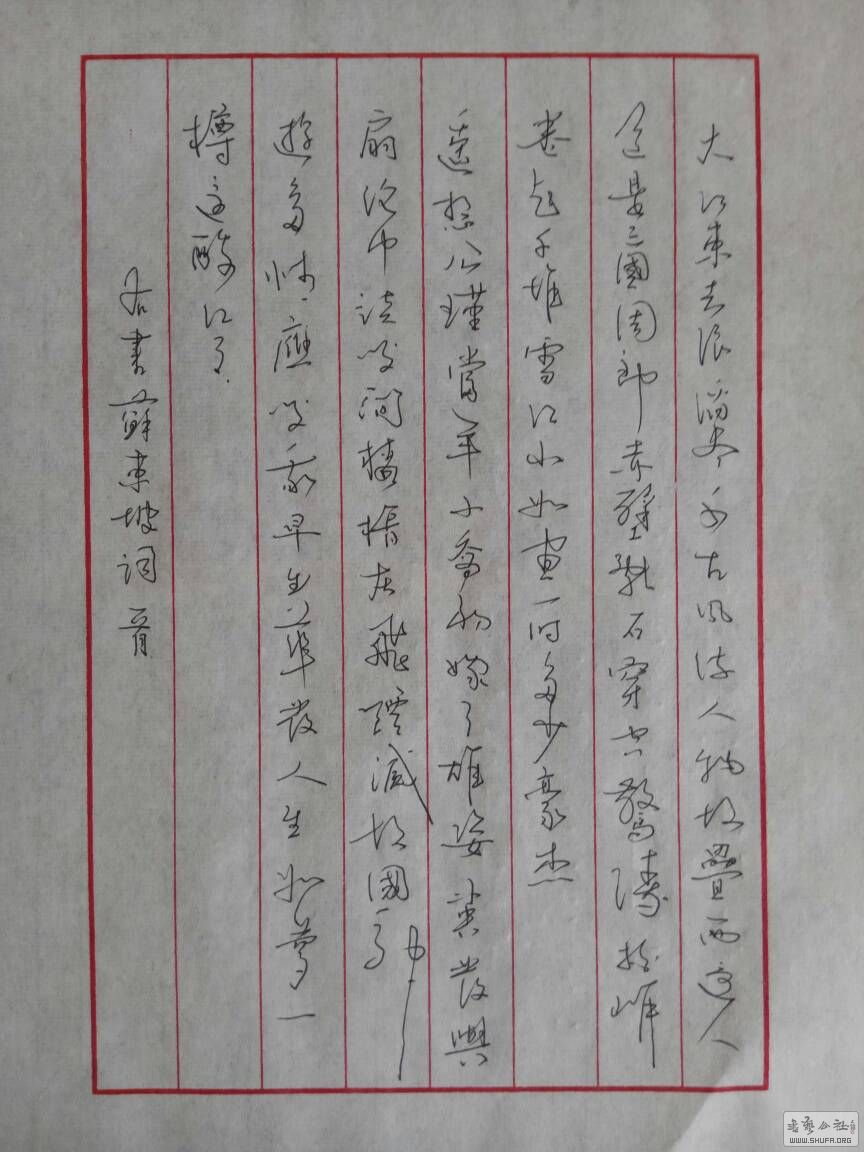 大江東去浪淘盡千古風流人物故壘西邊人
道是三國周郎赤壁亂石穿空驚濤拍岸
卷起千堆雪江山如畫一時多少豪杰
遙想公瑾當年小喬初嫁了雄姿英發與
扇綸巾談笑間檣櫓灰飛煙滅故國神
遊多情應笑我早生華發人生如夢一
樽還酹江月
右書蘇東坡詞
書藝公社
WWW.SHUFA.ORG